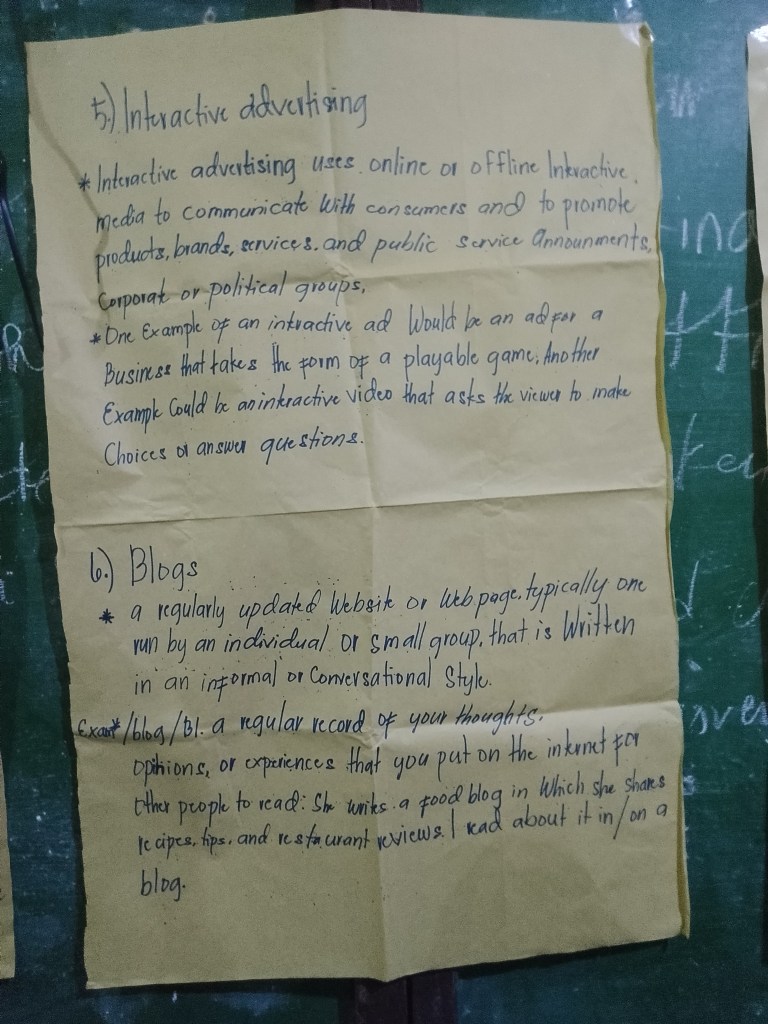 5.) Interactive advertising
* Interactive advertising uses online or offline Interactive
media to communicate With consumers and to promote
products, brands, services, and public service Announments,
Corporate or political groups,
* One Example of an interactive ad Would be an ad for a
Business that takes the form of a playable game; Another
Example Could be an interactive video that asks the viewer to make
Choices or answer questions.
6.) Blogs
* a regularly updated Website or Web page, typically one
run by an individual or small group, that is Written
in an informal or Conversational Style.
Exam* /blog/BI. a regular record of your thoughts,
opinions, or experiences that you put on the internet for
other people to read: She writes a food blog in Which she shares
recipes, tips, and restaurant reviews. I read about it in/on a
blog.